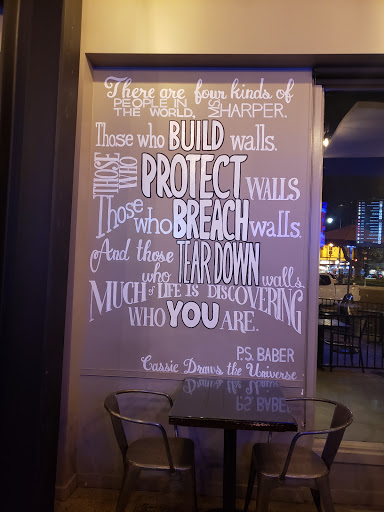 There are four kinds of
PEOPLE IN THE WORLD, MS. HARPER.
Those who BUILD walls.
THOSE WHO PROTECT WALLS
Those who BREACH walls.
And those who TEAR DOWN walls.
MUCH of LIFE IS DISCOVERING
WHO YOU ARE.
P.S. BABER
Cassie Draws the Universe